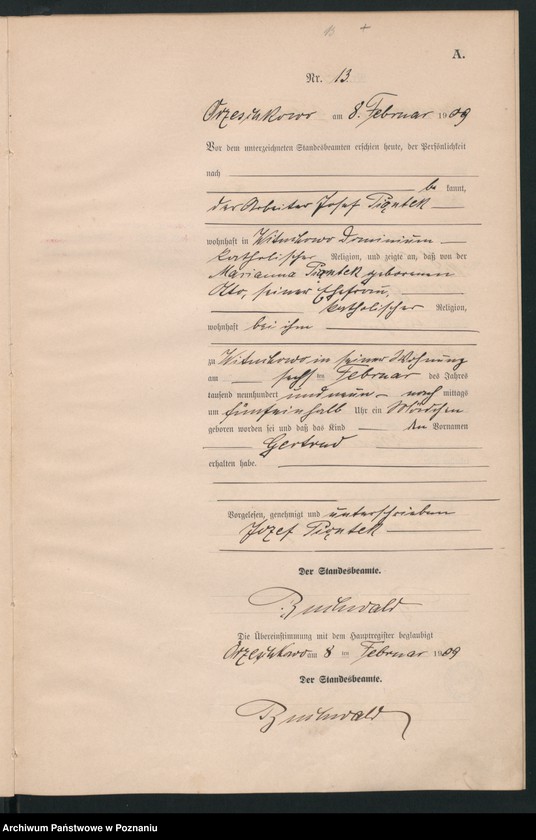 A.
Nr. 13.
Orzeschkowo am 8. Februar 1909
Vor dem unterzeichneten Standesbeamten erschien heute, der Persönlichkeit
nach
be kannt,
der Arbeiter Josef Piątek
wohnhaft in Witnikowo Dominium
katholischer Religion, und zeigte an, daß von der
Marianna Piątek geborenen
Otto, seiner Ehefrau,
katholischer Religion,
wohnhaft bei ihm
zu Witnikowo in seiner Wohnung
am sechsten Februar des Jahres
tausend neunhundert und neun nach mittags
um fünfeinhalb Uhr ein Mädchen
geboren worden sei und daß das Kind den Vornamen
Gertrud
erhalten habe.
Vorgelesen, genehmigt und unterschrieben
Jozef Piątek
Der Standesbeamte.
Buchwald
Die Übereinstimmung mit dem Hauptregister beglaubigt
Orzeschkowo am 8 ten Februar 1909
Der Standesbeamte.
Buchwald
Archiwum Państwowe w Poznaniu